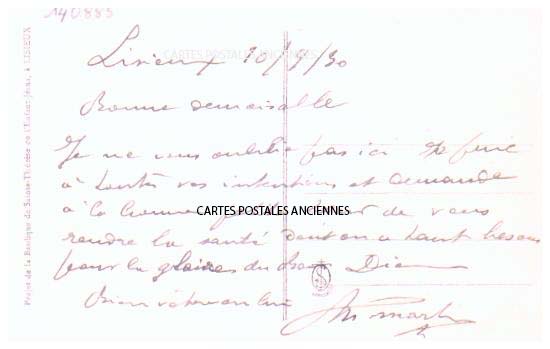 140.885
Lisieux 10/9/30
CARTES POSTALES ANCIENNES
Bonne demoiselle
Je ne vous oublie pas ici Je prie
à toutes vos intentions et demande
à la bonne de vous
CARTES POSTALES ANCIENNES
rendre la santé dont on a tant besoin
pour la gloire du bon Dieu
Projet de la Basilique de Sainte-Thérèse de l'Enfant-Jésus, à LISIEUX